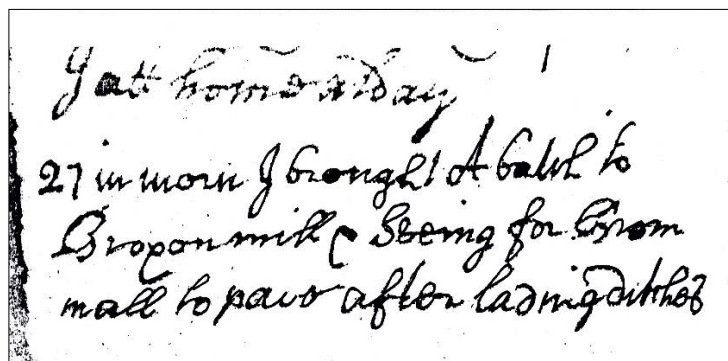 I att home day
27 in morn I brought A batch to
Broxon mill for
mall to after lading ditches